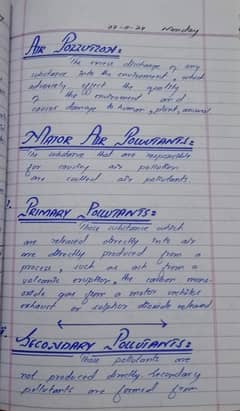 Monday
AIR POLLUTION:
The excess discharge of any
substance into the environment, which
adversely effect the quality
of the environment and
causes damage to human, plant, animal
MAJOR AIR POLLUTANTS:
The substance that are responsible
for causing air pollution
are called air pollutants.
PRIMARY POLLUTANTS:
Those substance which
are released directly into air
are directly produced from a
process, such as ash from a
volcanic eruption, the carbon mono-
oxide gas from a motor vechiles
exhaust or sulphur dioxide released
SECONDARY POLLUTANTS:
Those pollutants are
not produced directly. Secondary
pollutants are formed from